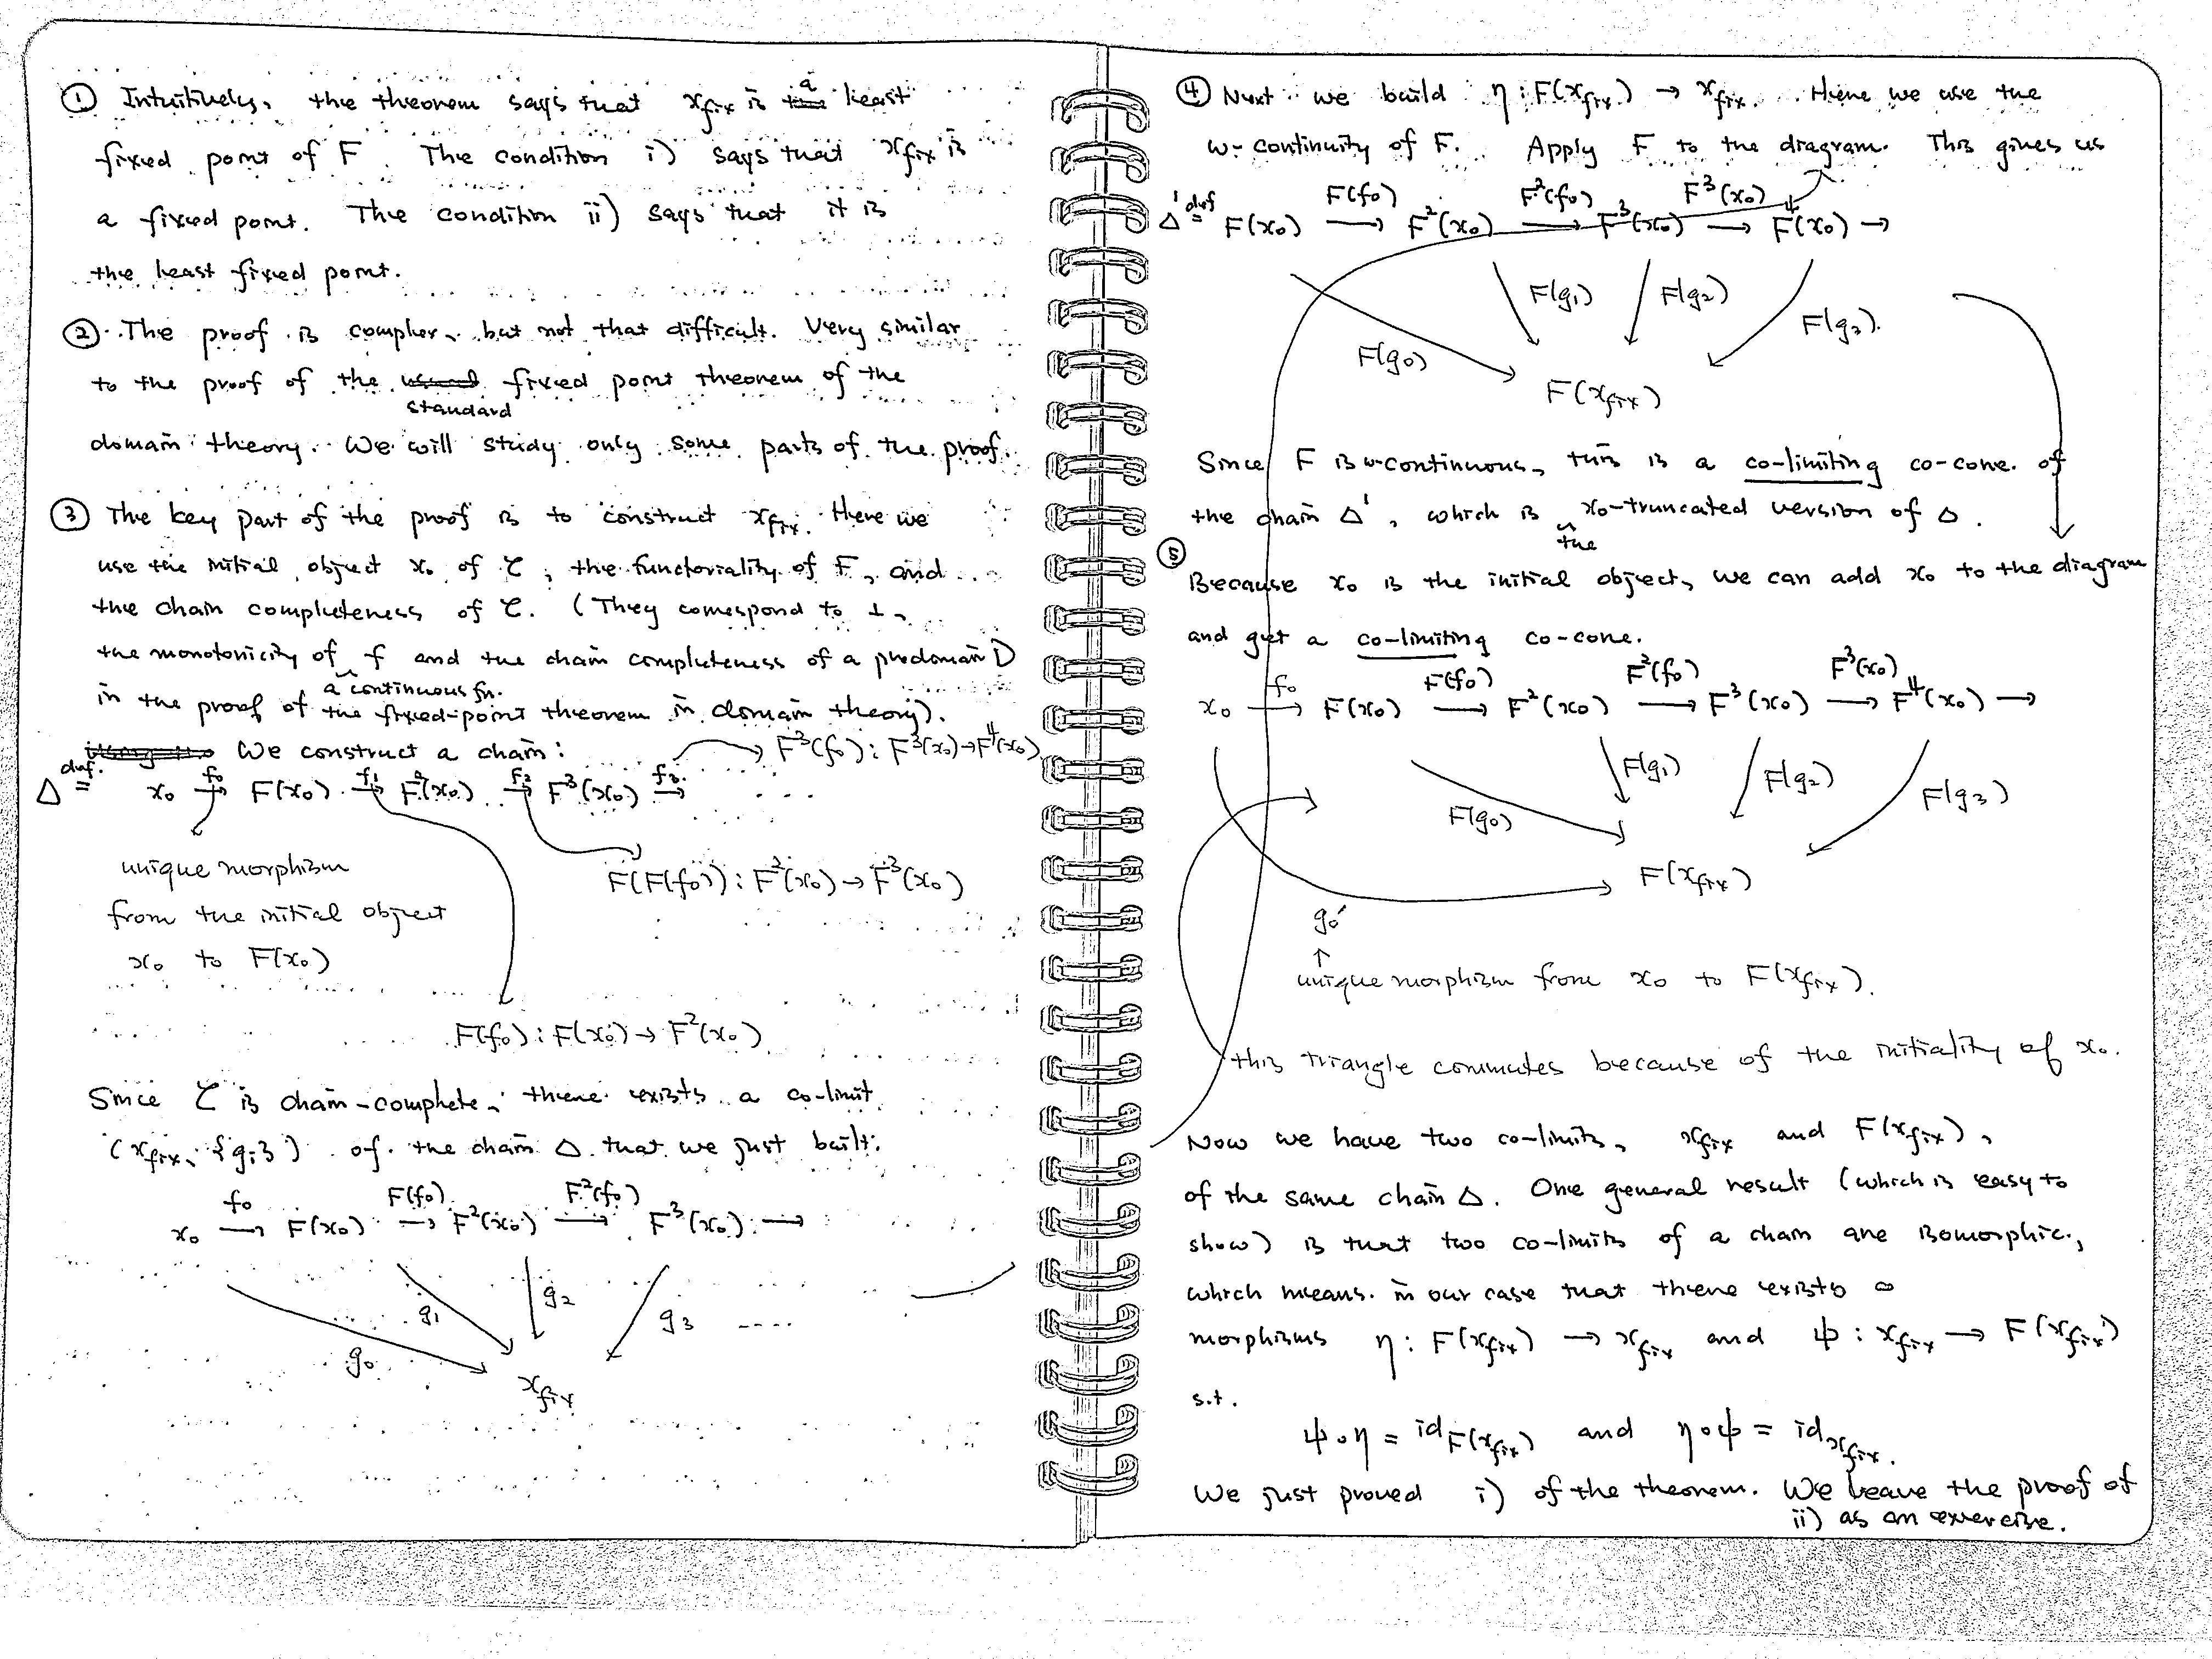 ① Intuitively, the theorem says that x_fix is a least
fixed point of F. The condition i) says that x_fix is
a fixed point. The condition ii) says that it is
the least fixed point.
② The proof is complex, but not that difficult. Very similar
to the proof of the standard fixed point theorem of the
domain theory. We will study only some parts of the proof.
③ The key part of the proof is to construct x_fix. Here we
use the initial object x₀ of C, the functoriality of F, and
the chain completeness of C. (They correspond to ⊥,
the monotonicity of f and the chain completeness of a predomain D
a continuous fn.
in the proof of the fixed-point theorem in domain theory).
We construct a chain:
F³(f₀) : F³(x₀) → F⁴(x₀)
Δ def= x₀ →f₀ F(x₀) →f₁ F²(x₀) →f₂ F³(x₀) →f₃ ...
unique morphism
from the initial object
x₀ to F(x₀)
F(F(f₀)) : F²(x₀) → F³(x₀)
F(f₀) : F(x₀) → F²(x₀)
Since C is chain-complete, there exists a co-limit
(x_fix, {gᵢ}) of the chain Δ that we just built:
f₀ F(f₀) F²(f₀)
x₀ → F(x₀) → F²(x₀) → F³(x₀) →
g₀ g₁ g₂ g₃ ----
x_fix
④ Next we build η : F(x_fix) → x_fix. Here we use the
ω-continuity of F. Apply F to the diagram. This gives us
F(f₀) F²(f₀) F³(x₀)
Δ' def= F(x₀) → F²(x₀) → F³(x₀) → F⁴(x₀) →
F(g₀) F(g₁) F(g₂) F(g₃).
F(x_fix)
Since F is ω-continuous, this is a co-limiting co-cone of
the chain Δ', which is the x₀-truncated version of Δ.
⑤
Because x₀ is the initial object, we can add x₀ to the diagram
and get a co-limiting co-cone.
f₀ F(f₀) F²(f₀) F³(x₀)
x₀ → F(x₀) → F²(x₀) → F³(x₀) → F⁴(x₀) →
F(g₀) F(g₁) F(g₂) F(g₃)
F(x_fix)
g₀'
↑
unique morphism from x₀ to F(x_fix).
this triangle commutes because of the initiality of x₀.
Now we have two co-limits, x_fix and F(x_fix),
of the same chain Δ. One general result (which is easy to
show) is that two co-limits of a chain are isomorphic,
which means in our case that there exists
morphisms η : F(x_fix) → x_fix and ψ : x_fix → F(x_fix)
s.t.
ψ∘η = id_F(x_fix) and η∘ψ = id_x_fix.
We just proved i) of the theorem. We leave the proof of
ii) as an exercise.